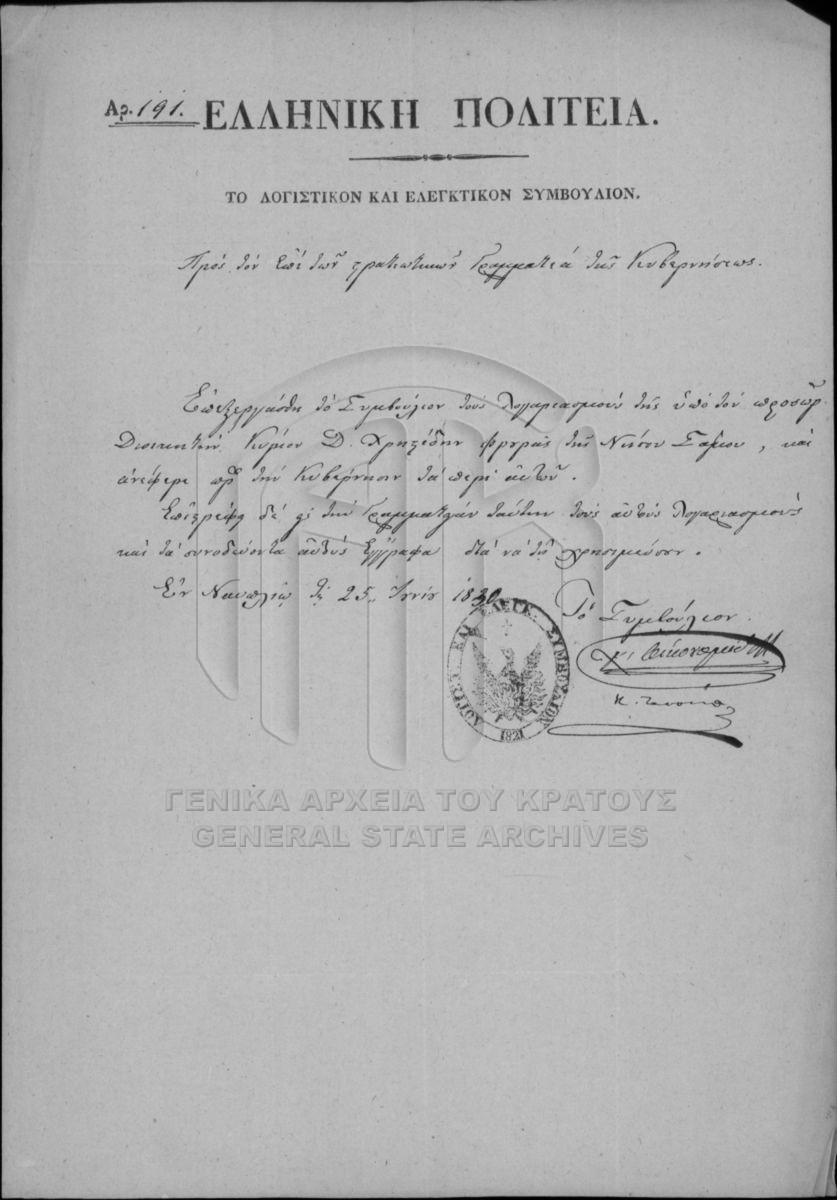 Αρ. 191. ΕΛΛΗΝΙΚΗ ΠΟΛΙΤΕΙΑ.
ΤΟ ΛΟΓΙΣΤΙΚΟΝ ΚΑΙ ΕΛΕΓΚΤΙΚΟΝ ΣΥΜΒΟΥΛΙΟΝ.
Πρὸς τὸν ἐπὶ τῶν στρατιωτικῶν Γραμματέα τῆς Κυβερνήσεως.
Ἐπεξεργάσθη τὸ Συμβούλιον τοὺς λογαριασμοὺς τῆς ὑπὸ τὸν προσωρ.
Διοικητὴν Κύριον Δ. φρουρᾶς τῆς Νήσου Σάμου, καὶ
ἀνέφερε πρὸς τὴν Κυβέρνησιν τὰ περὶ αὐτῶν.
Ἐπιστρέφει δὲ εἰς τὴν Γραμματείαν ταύτην τοὺς αὐτοὺς λογαριασμοὺς
καὶ τὰ συνοδεύοντα αὐτοὺς ἔγγραφα διὰ νὰ τῇ χρησιμεύσουν.
Ἐν Ναυπλίῳ τῇ 25 Ἰουνίου 1830
Τὸ Συμβούλιον.
ΛΟΓΙΣΤ. ΚΑΙ ΕΛΕΓΚ. ΣΥΜΒΟΥΛΙΟΝ
1821
ΓΕΝΙΚΑ ΑΡΧΕΙΑ ΤΟΥ ΚΡΑΤΟΥΣ
GENERAL STATE ARCHIVES